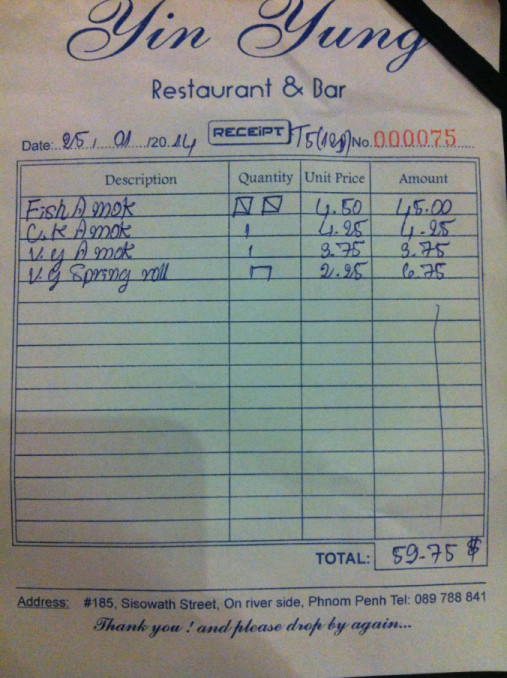 Yin Yung
Restaurant & Bar
Date: 25 / 01 /2014 RECEIPT T5(12p) No. 000075
Description Quantity Unit Price Amount
Fish Amok 4.50 45.00
C.k Amok 1 4.25 4.25
V.g Amok 1 3.75 3.75
V.g Spring roll 2.25 6.75
TOTAL: 59.75 $
Address: #185, Sisowath Street, On river side, Phnom Penh Tel: 089 788 841
Thank you ! and please drop by again...